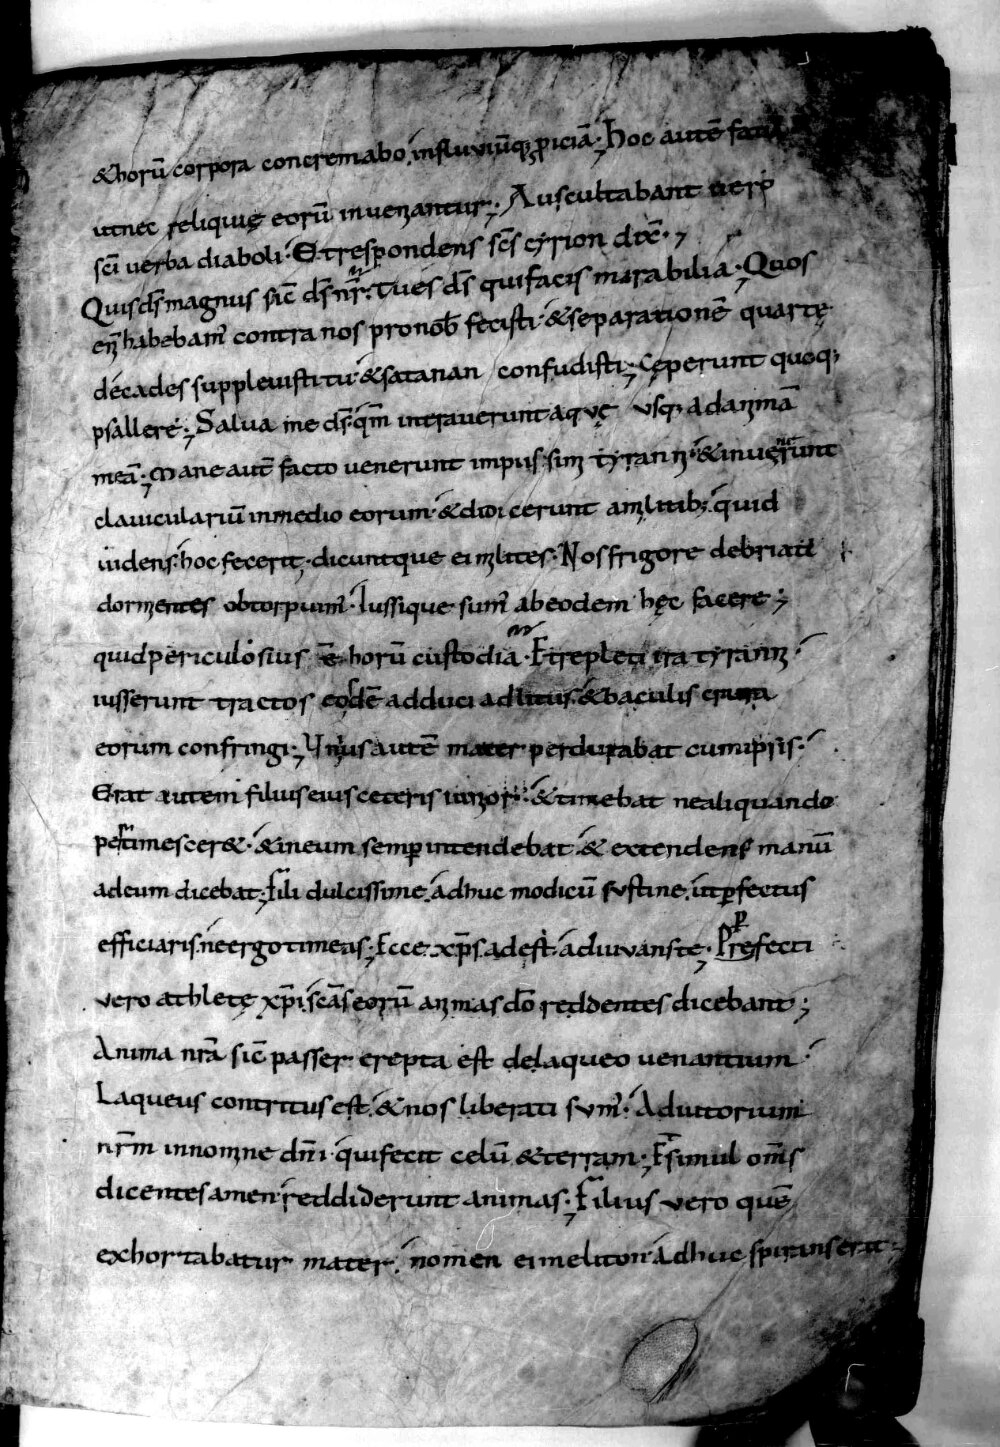 &horū corpora concremabo. influviūq; piciā· hoc autē faciā
utnec reliquię eorū inveniantur; Auscultabant vero
scī verba diaboli· Et respondens scs cyrion dix̄·;
Quis ds magnus sic̄ ds nr̄· tu es ds qui facis mirabilia; Quos
eni habebam' contra nos pro nob fecisti· &separationē quartę
decades supplevisti tu· &satanan confudisti; Cęperunt quoq;
psallere; Salua me ds· qm̄ intraverunt aquę vsq; ad animā
meā; Mane aut̄ facto venerunt impiis simi tyranni· &invenerunt
claviculariū in medio eorum· &dixerunt a militib; quid
videns· hoc fecerit· dicuntque ei milites· Nos frigore debriati
dormientes obtorpuim'· Iussique sum' ab eodem hęc facere;
quid periculosius ē horū custodia· Et repleti ira tyranni·
iusserunt tractos eosdē adduci ad litus· &baculis crura
eorum confringi; Vnius autē mater perdurabat cum ipsis·
Erat autem filius eius ceteris iunior· &timebat ne aliquando
pertimescer&· &in eum semp intendebat· & extendens manū
ad eum dicebat; Fili dulcissime. adhuc modicū sustine. ut pfectus
efficiaris. ne ergo timeas; Ecce xp̄s adest· adiuvans te; Prefecti
vero athletę xp̄i. scās eorū animas dō reddentes dicebant;
Anima nrā sic̄ passer erepta est de laqueo venantium·
Laqueus contritus est· &nos liberati sum'· Adiutorium
nrm̄ in nomine dn̄i· qui fecit celū &terram; Et simul om̄s
dicentes amen· reddiderunt animas; Filius vero quē
exhortabatur mater. nomen ei meliton· adhuc spirans erat;